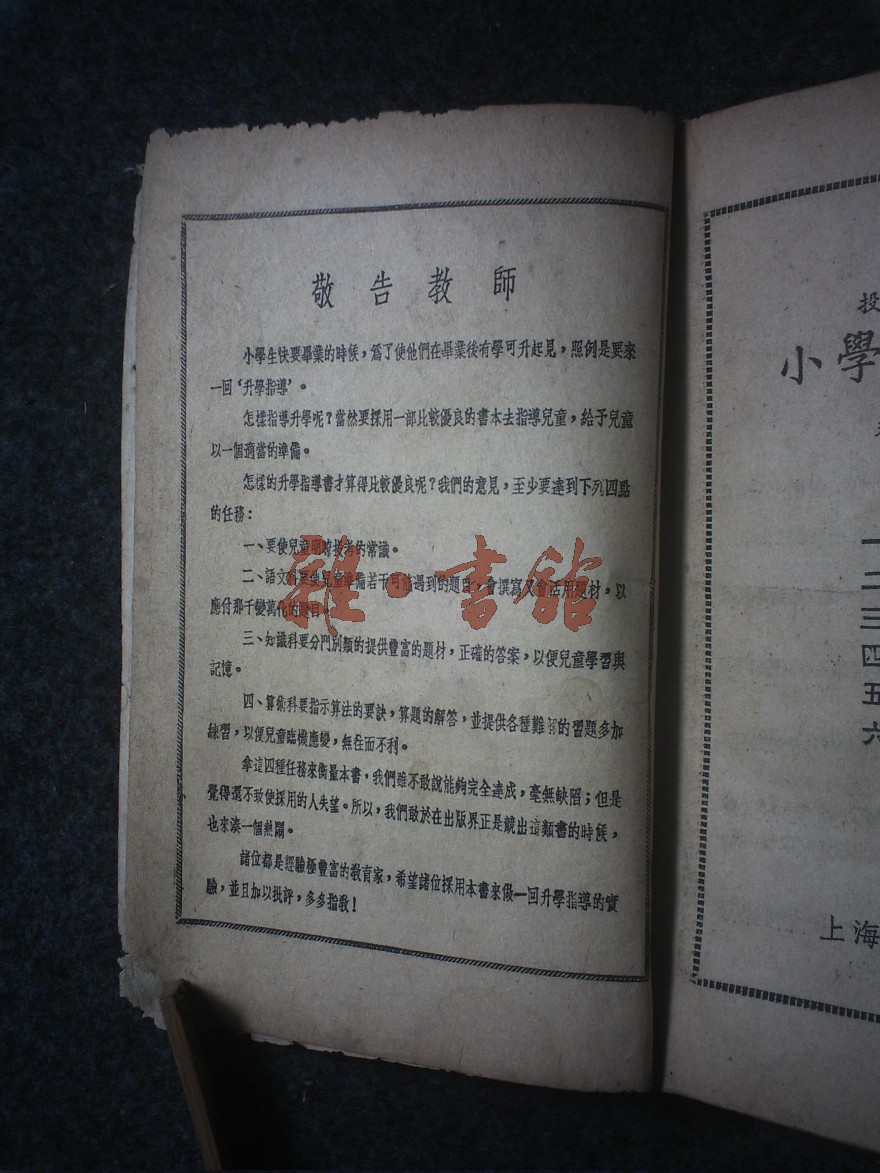 敬告教師
小學生快要畢業的時候，爲了使他們在畢業後有學可升起見，照例是要來
一回‘升學指導’。
怎樣指導升學呢？當然要採用一部比較優良的書本去指導兒童，給予兒童
以一個適當的準備。
怎樣的升學指導書才算得比較優良呢？我們的意見，至少要達到下列四點
的任務：
一、要使兒童明瞭投考的常識。
二、語文科要使兒童準備若干可能遇到的題目，會撰寫又會活用題材，以
應付那千變萬化的題目。
三、知識科要分門別類的提供豐富的題材，正確的答案，以便兒童學習與
記憶。
四、算術科要指示算法的要訣，算題的解答，並提供各種難的習題多加
練習，以便兒童臨機應變，無往而不利。
拿這四種任務來衡量本書，我們雖不敢說能夠完全達成，毫無缺陷；但是
覺得還不致使採用的人失望。所以，我們敢於在出版界正是競出這類書的時候，
也來湊一個熱鬧。
諸位都是經驗極豐富的教育家，希望諸位採用本書來做一回升學指導的實
驗，並且加以批評，多多指教！
雜·書館
投
小學
一
二
三
四
五
六
上海